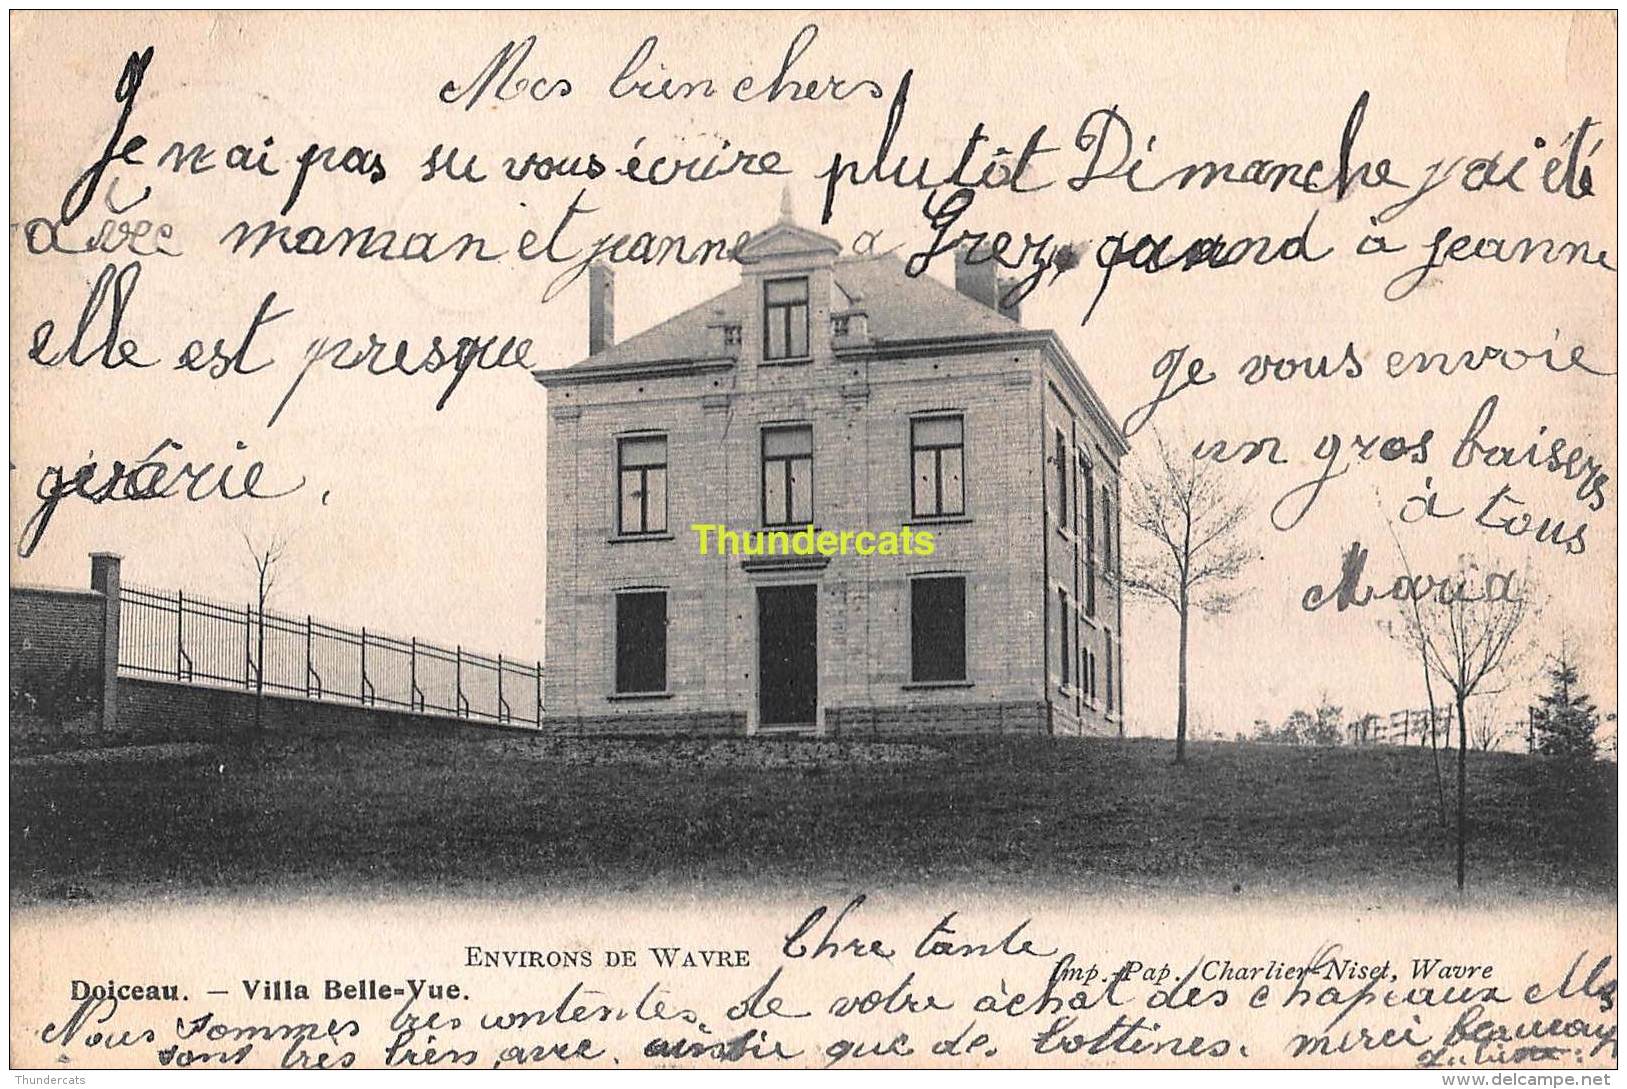 Mes bien chers
Je n ai pas su vous écrire plutôt Dimanche j ai été
avec maman et jeanne a Grez, quand à jeanne
elle est presque
Je vous envoie
un gros baisers
gérérie,
à tous
Maria
Thundercats
ENVIRONS DE WAVRE
Chre tante
Imp. Pap. Charlier-Niset, Wavre
Doiceau. — Villa Belle-Vue.
Nous sommes très contentes de votre àchat des chapeaux elles
sont très bien avec ainsie que de bottines. merci beaucoup
Thundercats
delcampe.net